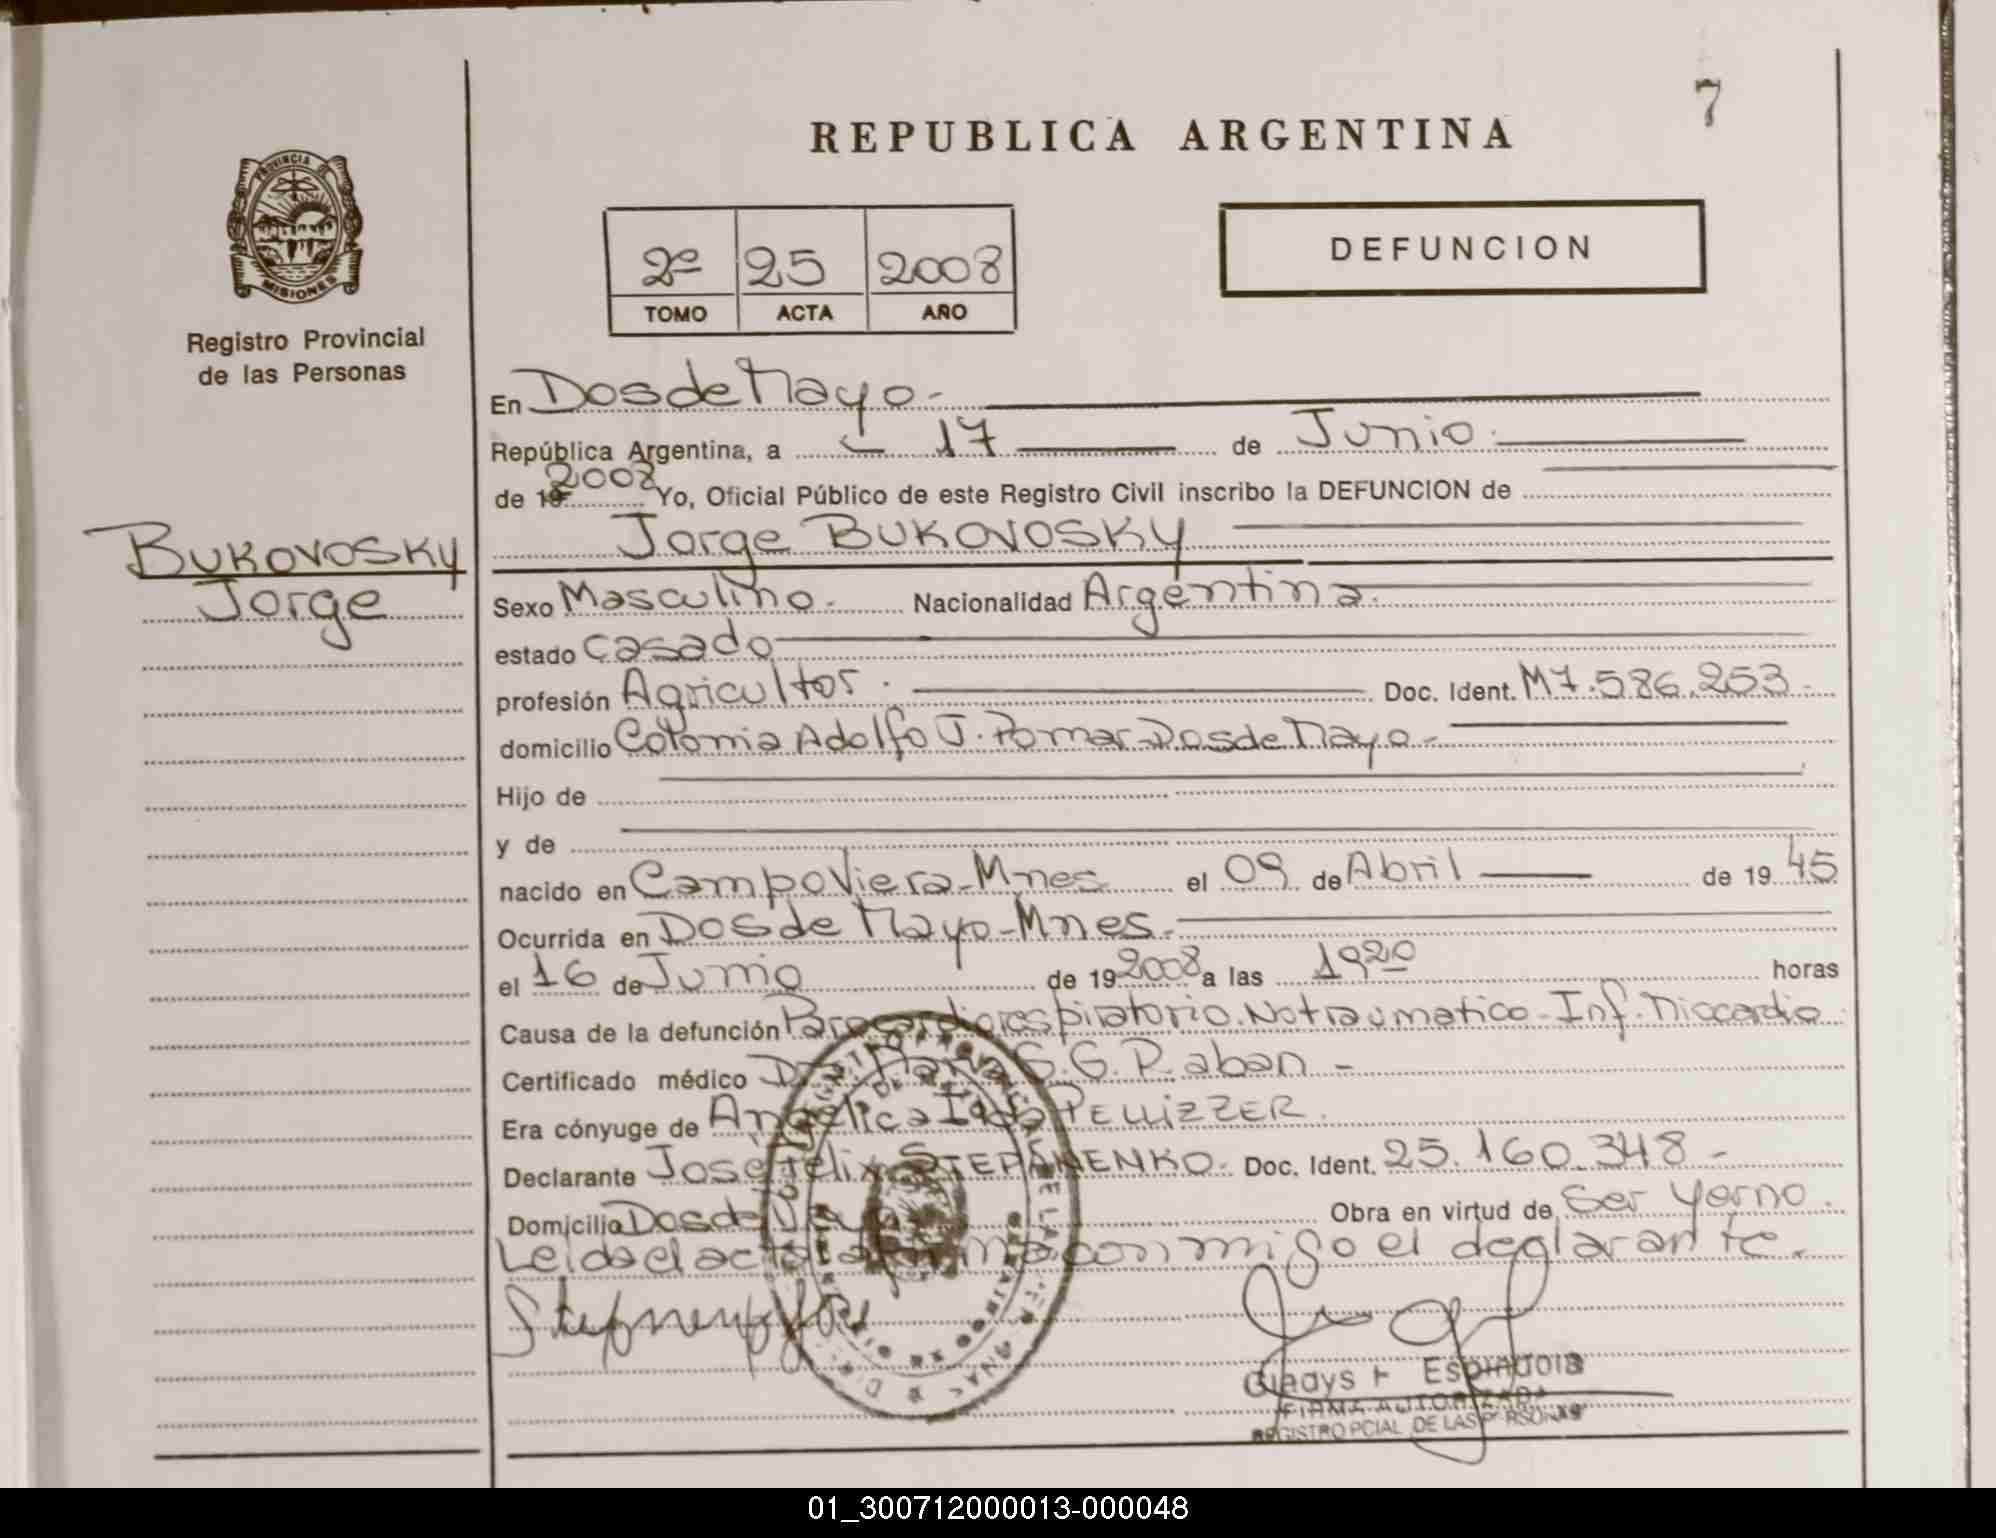 7
REPUBLICA ARGENTINA
PROVINCIA DE
MISIONES
Registro Provincial
de las Personas
2º 25 2008
TOMO ACTA AÑO
DEFUNCION
En Dos de Mayo.-
República Argentina, a 17 de Junio.
de 19 2008 Yo, Oficial Público de este Registro Civil inscribo la DEFUNCION de
Jorge BUKOVOSKY
BUKOVOSKY
Jorge
Sexo Masculino. Nacionalidad Argentina.
estado casado
profesión Agricultor. Doc. Ident. M7.586.253.-
domicilio Colonia Adolfo J. Pomar-Dos de Mayo.-
Hijo de
y de
nacido en Campo Viera-Mnes. el 09 de Abril de 19 45
Ocurrida en Dos de Mayo-Mnes.
el 16 de Junio de 19 2008 a las 19 20 horas
Causa de la defunción Parocardiorespiratorio. No traumatico-Inf. Miocardio
Certificado médico G.G. Raban -
Era cónyuge de Angélica PELLIZZER.
Declarante José Félix STEPANENKO. Doc. Ident. 25.160.348-
Domicilio Dos de Mayo Obra en virtud de ser yerno.
Leida el acta la firma conmigo el deglarante.
Gladys Espindola
FIRMA AUTORIZADA
REGISTRO PCIAL DE LAS PERSONAS
01_300712000013-000048